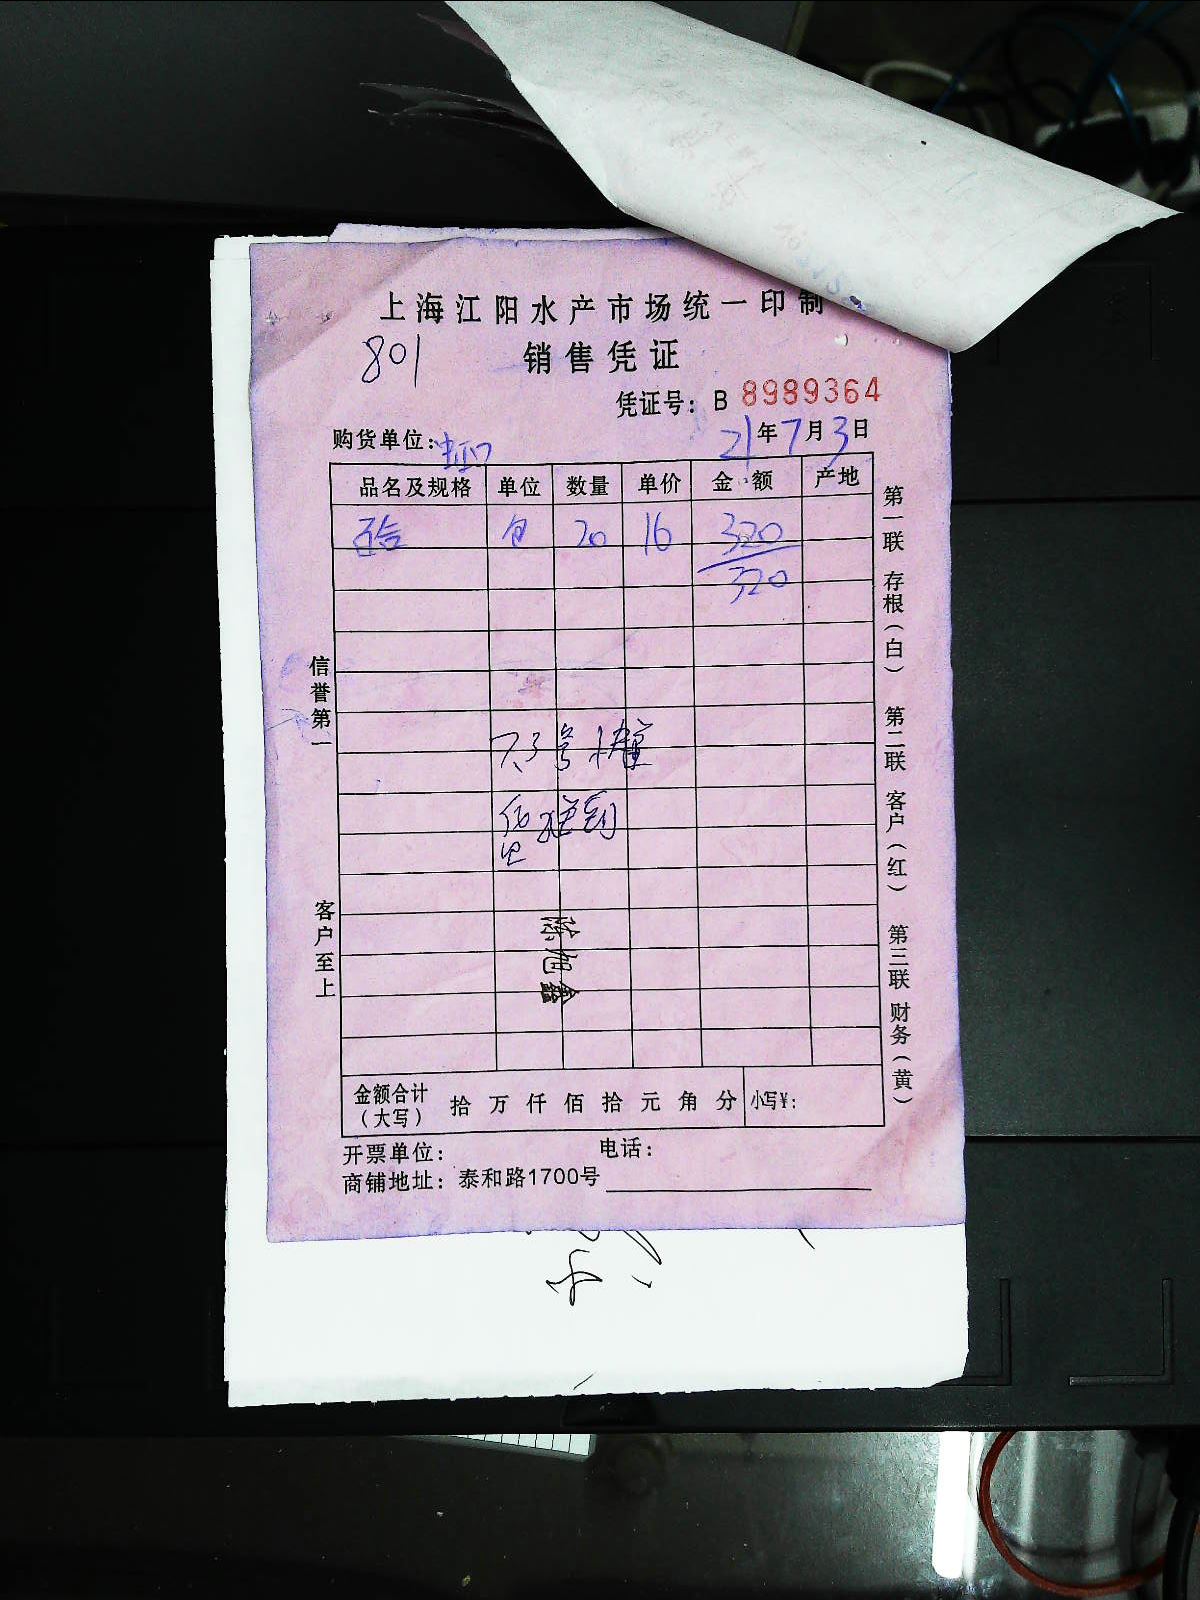 上海江阳水产市场统一印制
801
销售凭证
凭证号：B 8989364
购货单位：虹口
21年7月3日
品名及规格 单位 数量 单价 金额 产地
百合 包 20 16 320
320
信誉第一
客户至上
第一联 存根（白） 第二联 客户（红） 第三联 财务（黄）
陈旭鑫
金额合计（大写） 拾 万 仟 佰 拾 元 角 分 小写¥：
开票单位： 电话：
商铺地址：泰和路1700号